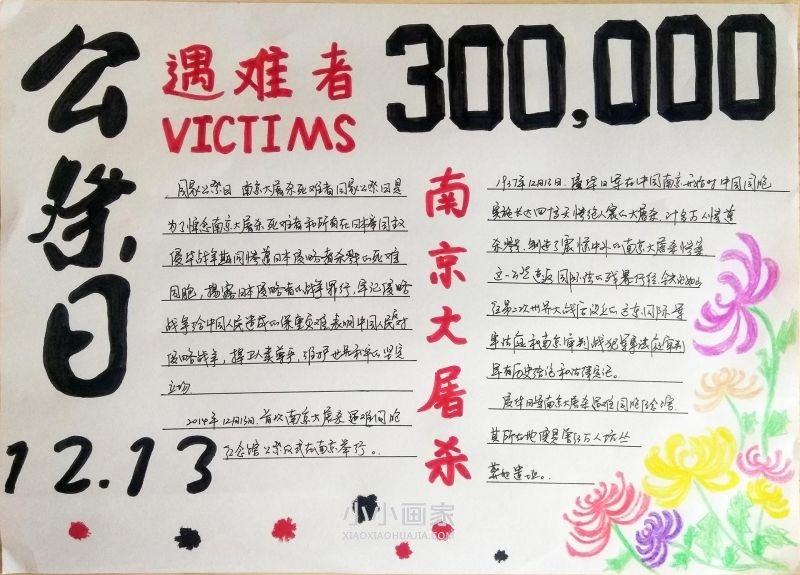 公祭日
12.13
遇难者
VICTIMS
300,000
南京大屠杀
国家公祭日 南京大屠杀死难者国家公祭日是
为了悼念南京大屠杀死难者和所有在日本帝国主义
侵华战争期间惨遭日本侵略者杀戮的死难
同胞,揭露日本侵略者的战争罪行,牢记侵略
战争给中国人民造成的深重灾难,表明中国人民反对
侵略战争、捍卫人类尊严、维护世界和平的坚定
立场
2014年12月13日,首次南京大屠杀遇难同胞
纪念馆公祭仪式在南京举行。
1937年12月13日,侵华日军在中国南京开始对中国同胞
实施长达四十多天惨绝人寰的大屠杀,30多万人惨遭
杀戮,制造了震惊中外的南京大屠杀惨案
这一公然违反国际法的残暴行径
在第二次世界大战后设立的远东国际军
事法庭和南京审判战犯军事法庭审判
具有历史结论和法律定论。
侵华日军南京大屠杀遇难同胞纪念馆
其所在地便是
葬地遗址。
小小画家
XIAOXIAOHUAJIA.COM